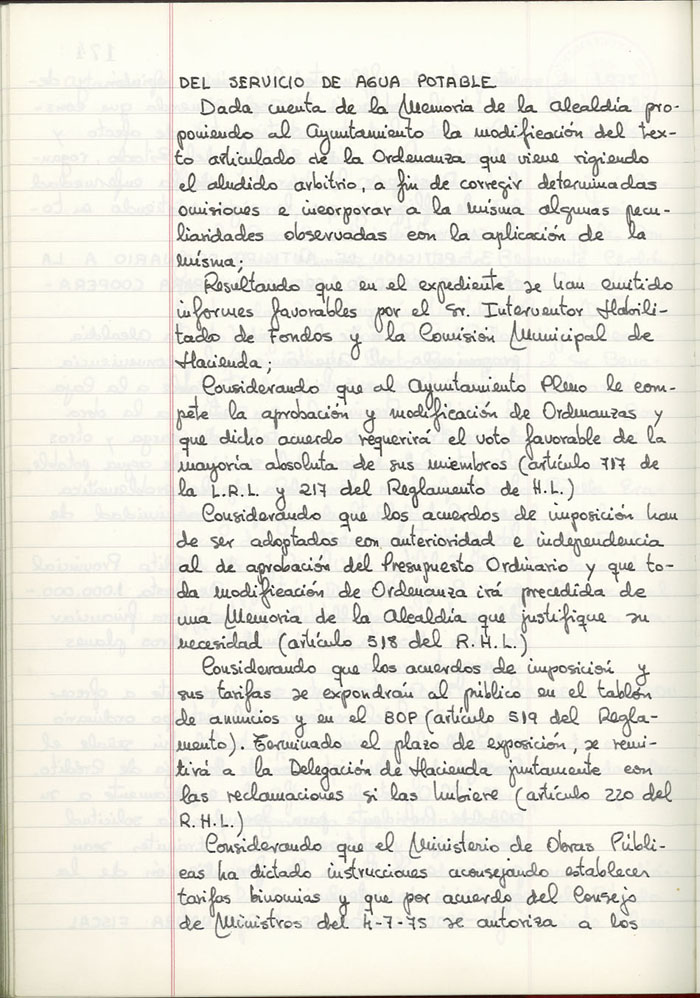 DEL SERVICIO DE AGUA POTABLE
Dada cuenta de la Memoria de la Alcaldía pro-
poniendo al Ayuntamiento la modificación del tex-
to articulado de la Ordenanza que viene rigiendo
el aludido arbitrio, a fin de corregir determinadas
omisiones e incorporar a la misma algunas pecu-
liaridades observadas con la aplicación de la
misma;
Resultando que en el expediente se han emitido
informes favorables por el Sr. Interventor Habili-
tado de Fondos y la Comisión Municipal de
Hacienda;
Considerando que al Ayuntamiento Pleno le com-
pete la aprobación y modificación de Ordenanzas y
que dicho acuerdo requerirá el voto favorable de la
mayoría absoluta de sus miembros (artículo 717 de
la L.R.L. y 217 del Reglamento de H.L.)
Considerando que los acuerdos de imposición han
de ser adoptados con anterioridad e independencia
al de aprobación del Presupuesto Ordinario y que to-
da modificación de Ordenanza irá precedida de
una Memoria de la Alcaldía que justifique su
necesidad (artículo 518 del R.H.L.)
Considerando que los acuerdos de imposición y
sus tarifas se expondrán al público en el tablón
de anuncios y en el BOP (artículo 519 del Regla-
mento). Terminado el plazo de exposición, se remi-
tirá a la Delegación de Hacienda juntamente con
las reclamaciones si las hubiere (artículo 220 del
R.H.L.)
Considerando que el Ministerio de Obras Públi-
cas ha dictado instrucciones aconsejando establecer
tarifas binomias y que por acuerdo del Consejo
de Ministros del 4-7-75 se autoriza a los